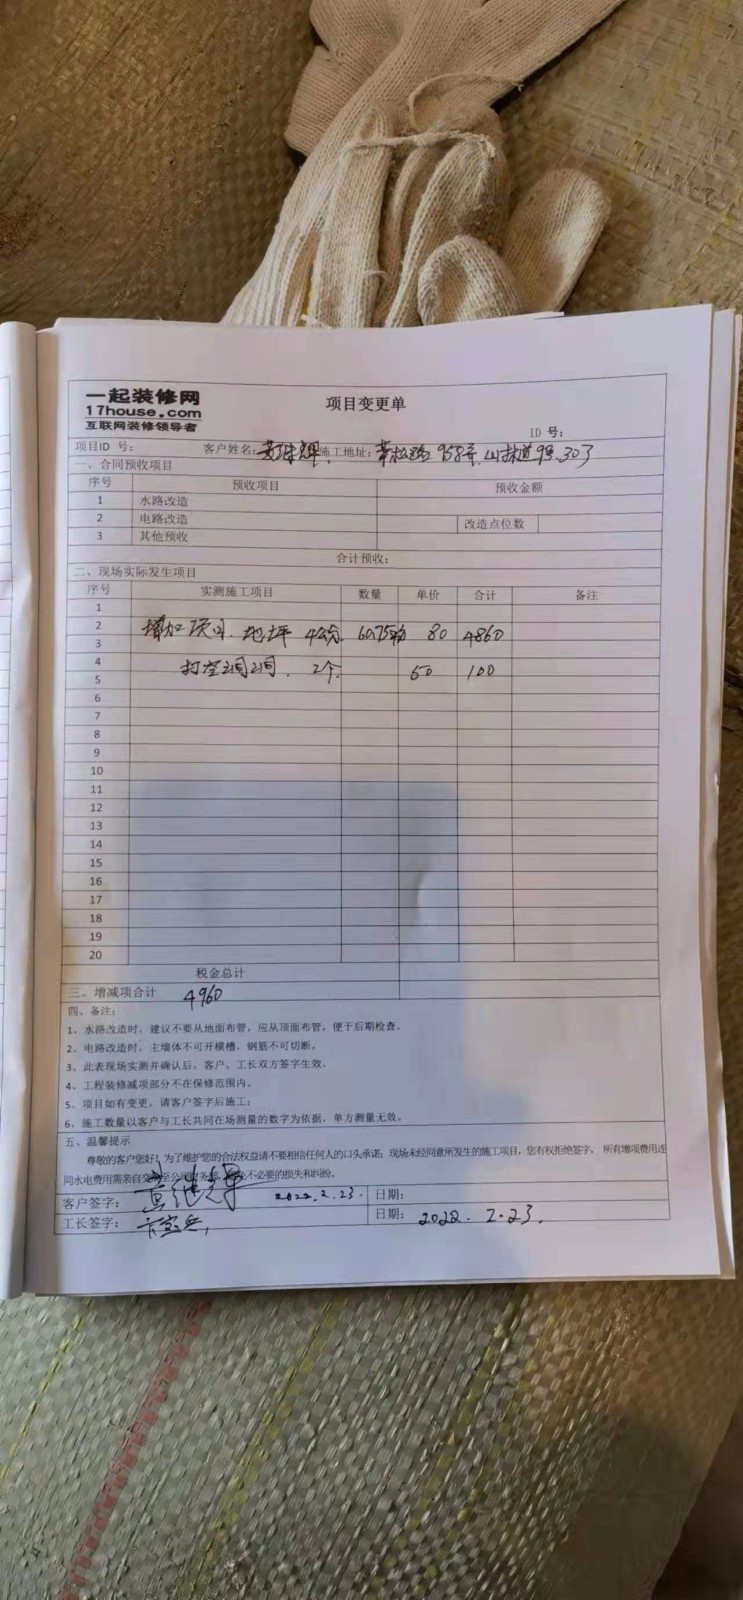 一起装修网
17house.com
互联网装修领导者
项目变更单
ID 号:
项目ID 号: 客户姓名: 施工地址: 958弄 9号 303
一、合同预收项目
序号 预收项目 预收金额
1 水路改造
2 电路改造 改造点位数
3 其他预收
合计预收:
二、现场实际发生项目
序号 实测施工项目 数量 单价 合计 备注
1
2 增加项目. 地坪 4公分 60.75 80 4860
3
4 打空调洞. 2个. 50 100
5
6
7
8
9
10
11
12
13
14
15
16
17
18
19
20
税金总计
三、增减项合计 4960
四、备注:
1、水路改造时，建议不要从地面布管，应从顶面布管，便于后期检查。
2、电路改造时，主墙体不可开横槽，钢筋不可切断。
3、此表现场实测并确认后，客户、工长双方签字生效。
4、工程装修减项部分不在保修范围内。
5、项目如有变更，请客户签字后施工;
6、施工数量以客户与工长共同在场测量的数字为依据，单方测量无效。
五、温馨提示
尊敬的客户您好！为了维护您的合法权益请不要相信任何人的口头承诺；现场未经同意所发生的施工项目，您有权拒绝签字， 所有增项费用连
同水电费用需亲自交 至公司财务部 不必要的损失和纠纷。
客户签字: 2022.2.23. 日期:
工长签字: 日期: 2022.2.23.